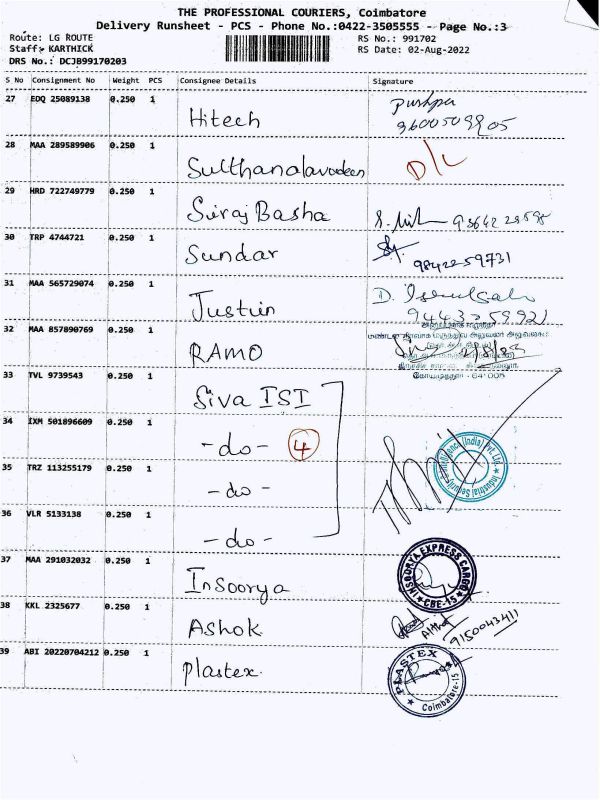 THE PROFESSIONAL COURIERS, Coimbatore
Delivery Runsheet - PCS - Phone No.:0422-3505555 - Page No.:3
Route: LG ROUTE
RS No.: 991702
Staff: KARTHICK
RS Date: 02-Aug-2022
DRS No.: DCJB99170203
S No Consignment No Weight PCS Consignee Details Signature
27 EDQ 25089138 0.250 1 Hitech Pushpa
28 MAA 289589906 0.250 1 Sulthanalavudeen D/L
29 HRD 722749779 0.250 1 Siraj Basha
30 TRP 4744721 0.250 1 Sundar 9842259731
31 MAA 565729074 0.250 1 Justuin
32 MAA 857890769 0.250 1 RAMO
33 TVL 9739543 0.250 1 Siva ISI
34 IXM 501896609 0.250 1 -do- 4
35 TRZ 113255179 0.250 1 -do-
36 VLR 5133138 0.250 1 -do-
37 MAA 291032032 0.250 1 Insoorya INSOORYA EXPRESS CARGO CBE-15
38 KKL 2325677 0.250 1 Ashok 9150043411
39 ABI 20220704212 0.250 1 Plastex PLASTEX Coimbatore-15